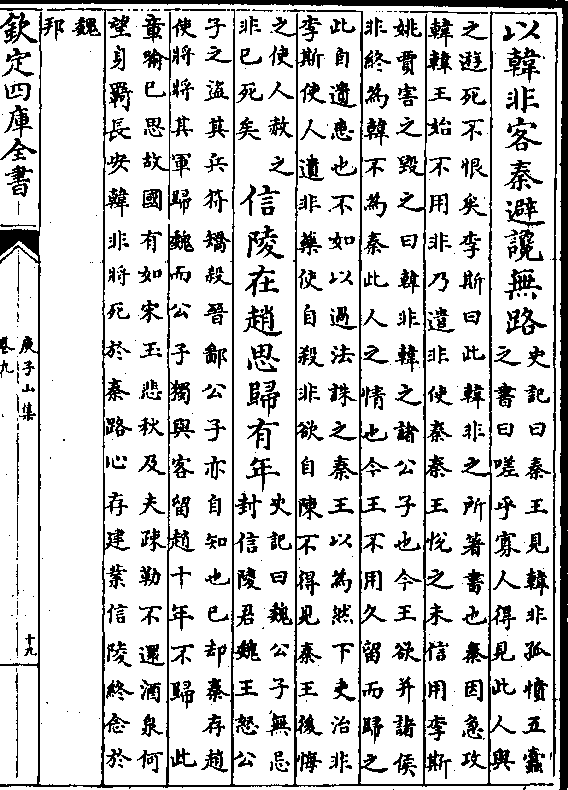 以韓非客秦避讒無路
史記曰秦王見韓非孤憤五蠹
之書曰嗟乎寡人得見此人與
之遊死不恨矣李斯曰此韓非之所著書也秦因急攻
韓韓王始不用非乃遣非使秦秦王悅之未信用李斯
姚賈害之毀之曰韓非韓之諸公子也今王欲并諸侯
非終為韓不為秦此人之情也今王不用久留而歸之
此自遺患也不如以過法誅之秦王以為然下吏治非
李斯使人遺非藥使自殺非欲自陳不得見秦王後悔
之使人赦之
非已死矣
信陵在趙思歸有年
史記曰魏公子無忌
封信陵君魏王怒公
子之盜其兵符矯殺晉鄙公子亦自知也已却秦存趙
使將將其軍歸魏而公子獨與客留趙十年不歸 此
章喻已思故國有如宋玉悲秋及夫疎勒不還酒泉何
望身羇長安韓非將死於秦路心存建業信陵終念於
魏
邦
欽定四庫全書
庾子山集
卷九
十九